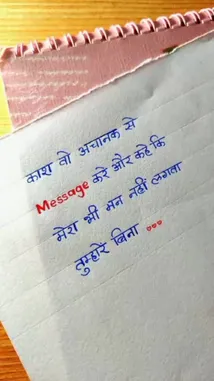 काश वो अचानक से
Message करे और कहे कि
मेरा भी मन नहीं लगता
तुम्हारे बिना ...